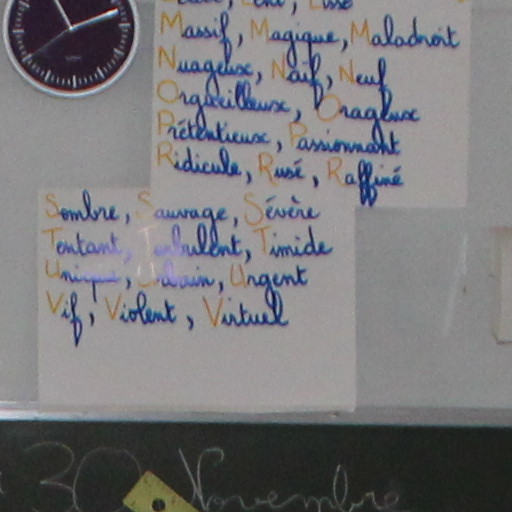 Lent, Lisse
Massif, Magique, Maladroit
Nuageux, Naïf, Neuf
Orgueilleux, Orageux
Prétentieux, Passionnant
Ridicule, Rusé, Raffiné
Sombre, Sauvage, Sévère
Tentant, Turbulent, Timide
Unique, Urbain, Urgent
Vif, Violent, Virtuel
30 Novembre